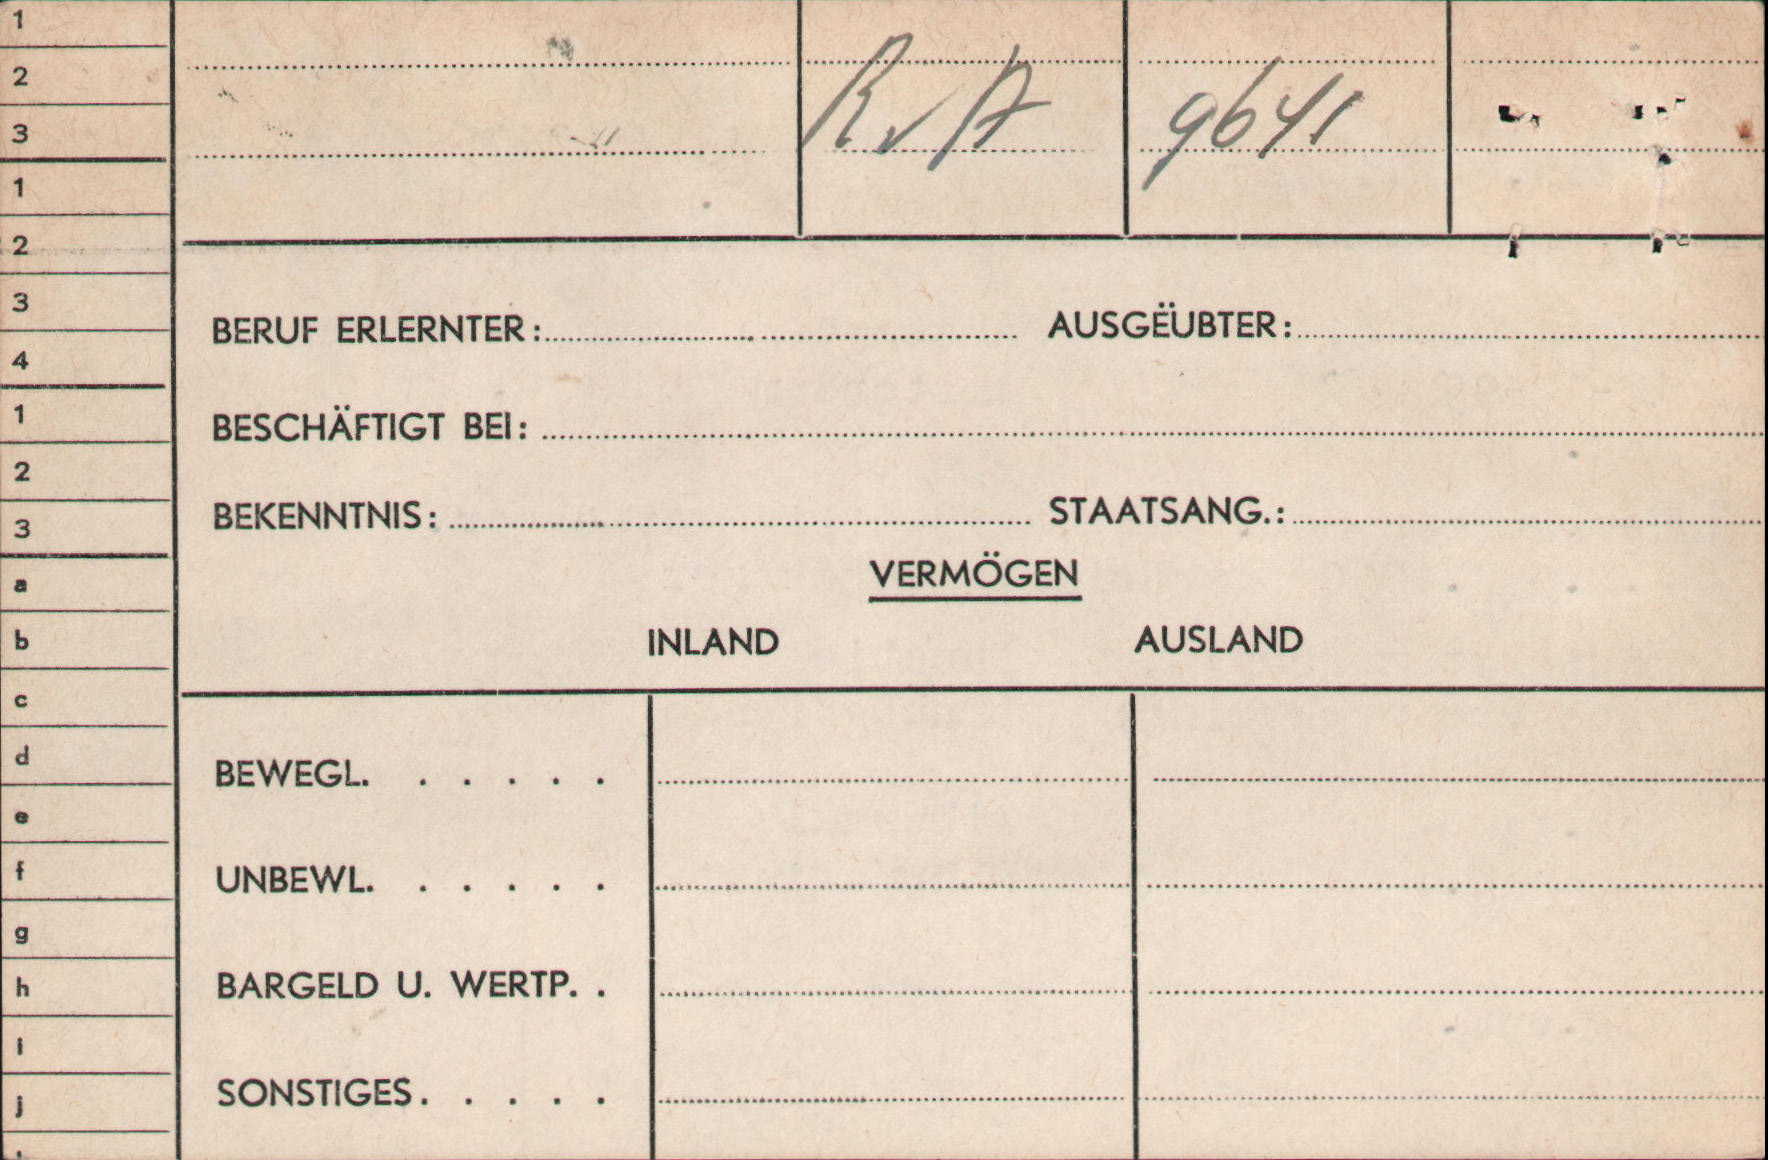 1
2
3
1
2
3
4
1
2
3
a
b
c
d
e
f
g
h
i
j
RvA 9641
BERUF ERLERNTER: AUSGËUBTER:
BESCHÄFTIGT BEI:
BEKENNTNIS: STAATSANG.:
VERMÖGEN
INLAND AUSLAND
BEWEGL. . . . . .
UNBEWL. . . . . .
BARGELD U. WERTP. .
SONSTIGES. . . . .